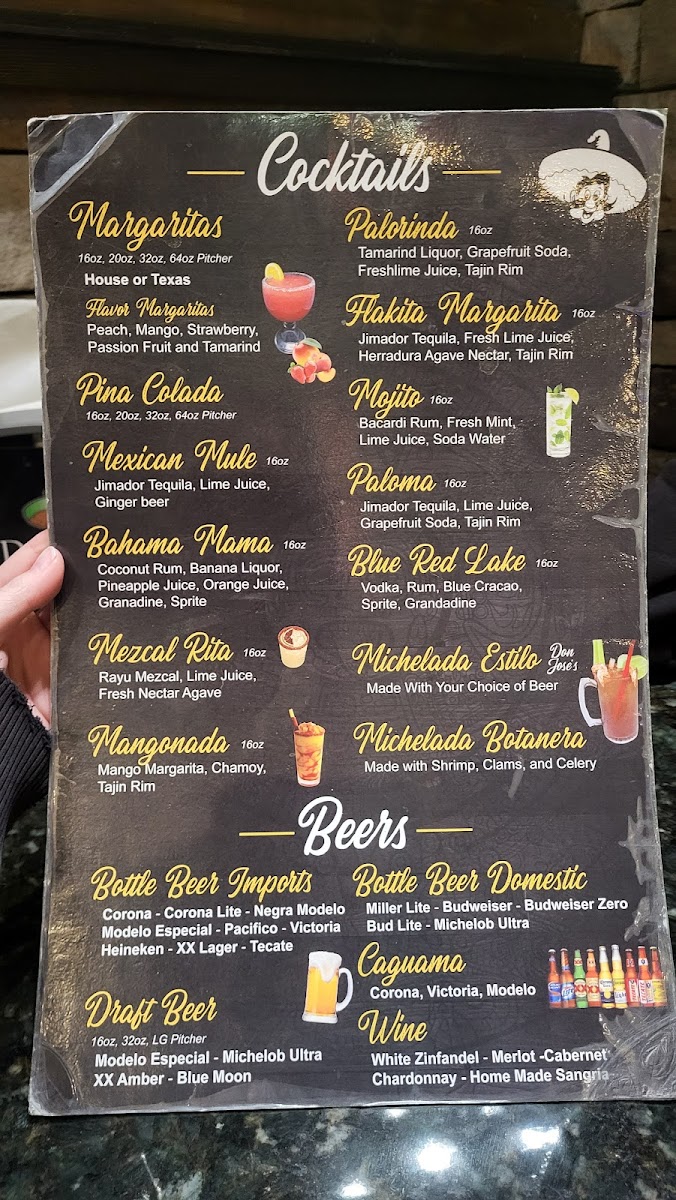 Cocktails
Margaritas
16oz, 20oz, 32oz, 64oz Pitcher
House or Texas
Flavor Margaritas
Peach, Mango, Strawberry,
Passion Fruit and Tamarind
Pina Colada
16oz, 20oz, 32oz, 64oz Pitcher
Mexican Mule 16oz
Jimador Tequila, Lime Juice,
Ginger beer
Bahama Mama 16oz
Coconut Rum, Banana Liquor,
Pineapple Juice, Orange Juice,
Granadine, Sprite
Mezcal Rita 16oz
Rayu Mezcal, Lime Juice,
Fresh Nectar Agave
Mangonada 16oz
Mango Margarita, Chamoy,
Tajin Rim
Palorinda 16oz
Tamarind Liquor, Grapefruit Soda,
Freshlime Juice, Tajin Rim
Flakita Margarita 16oz
Jimador Tequila, Fresh Lime Juice,
Herradura Agave Nectar, Tajin Rim
Mojito 16oz
Bacardi Rum, Fresh Mint,
Lime Juice, Soda Water
Paloma 16oz
Jimador Tequila, Lime Juice,
Grapefruit Soda, Tajin Rim
Blue Red Lake 16oz
Vodka, Rum, Blue Cracao,
Sprite, Grandadine
Michelada Estilo Don José's
Made With Your Choice of Beer
Michelada Botanera
Made with Shrimp, Clams, and Celery
Beers
Bottle Beer Imports
Corona - Corona Lite - Negra Modelo
Modelo Especial - Pacifico - Victoria
Heineken - XX Lager - Tecate
Draft Beer
16oz, 32oz, LG Pitcher
Modelo Especial - Michelob Ultra
XX Amber - Blue Moon
Bottle Beer Domestic
Miller Lite - Budweiser - Budweiser Zero
Bud Lite - Michelob Ultra
Caguama
Corona, Victoria, Modelo
Wine
White Zinfandel - Merlot -Cabernet
Chardonnay - Home Made Sangria